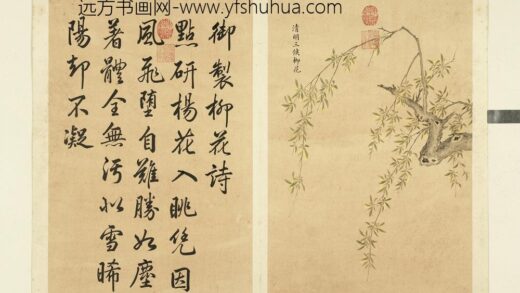 远方书画网-www.yfshuhua.com
御製柳花詩
點研楊花入眺凭因
風飛墮自難勝如塵
著體全無污似雪晞
陽却不凝
清明三候柳花